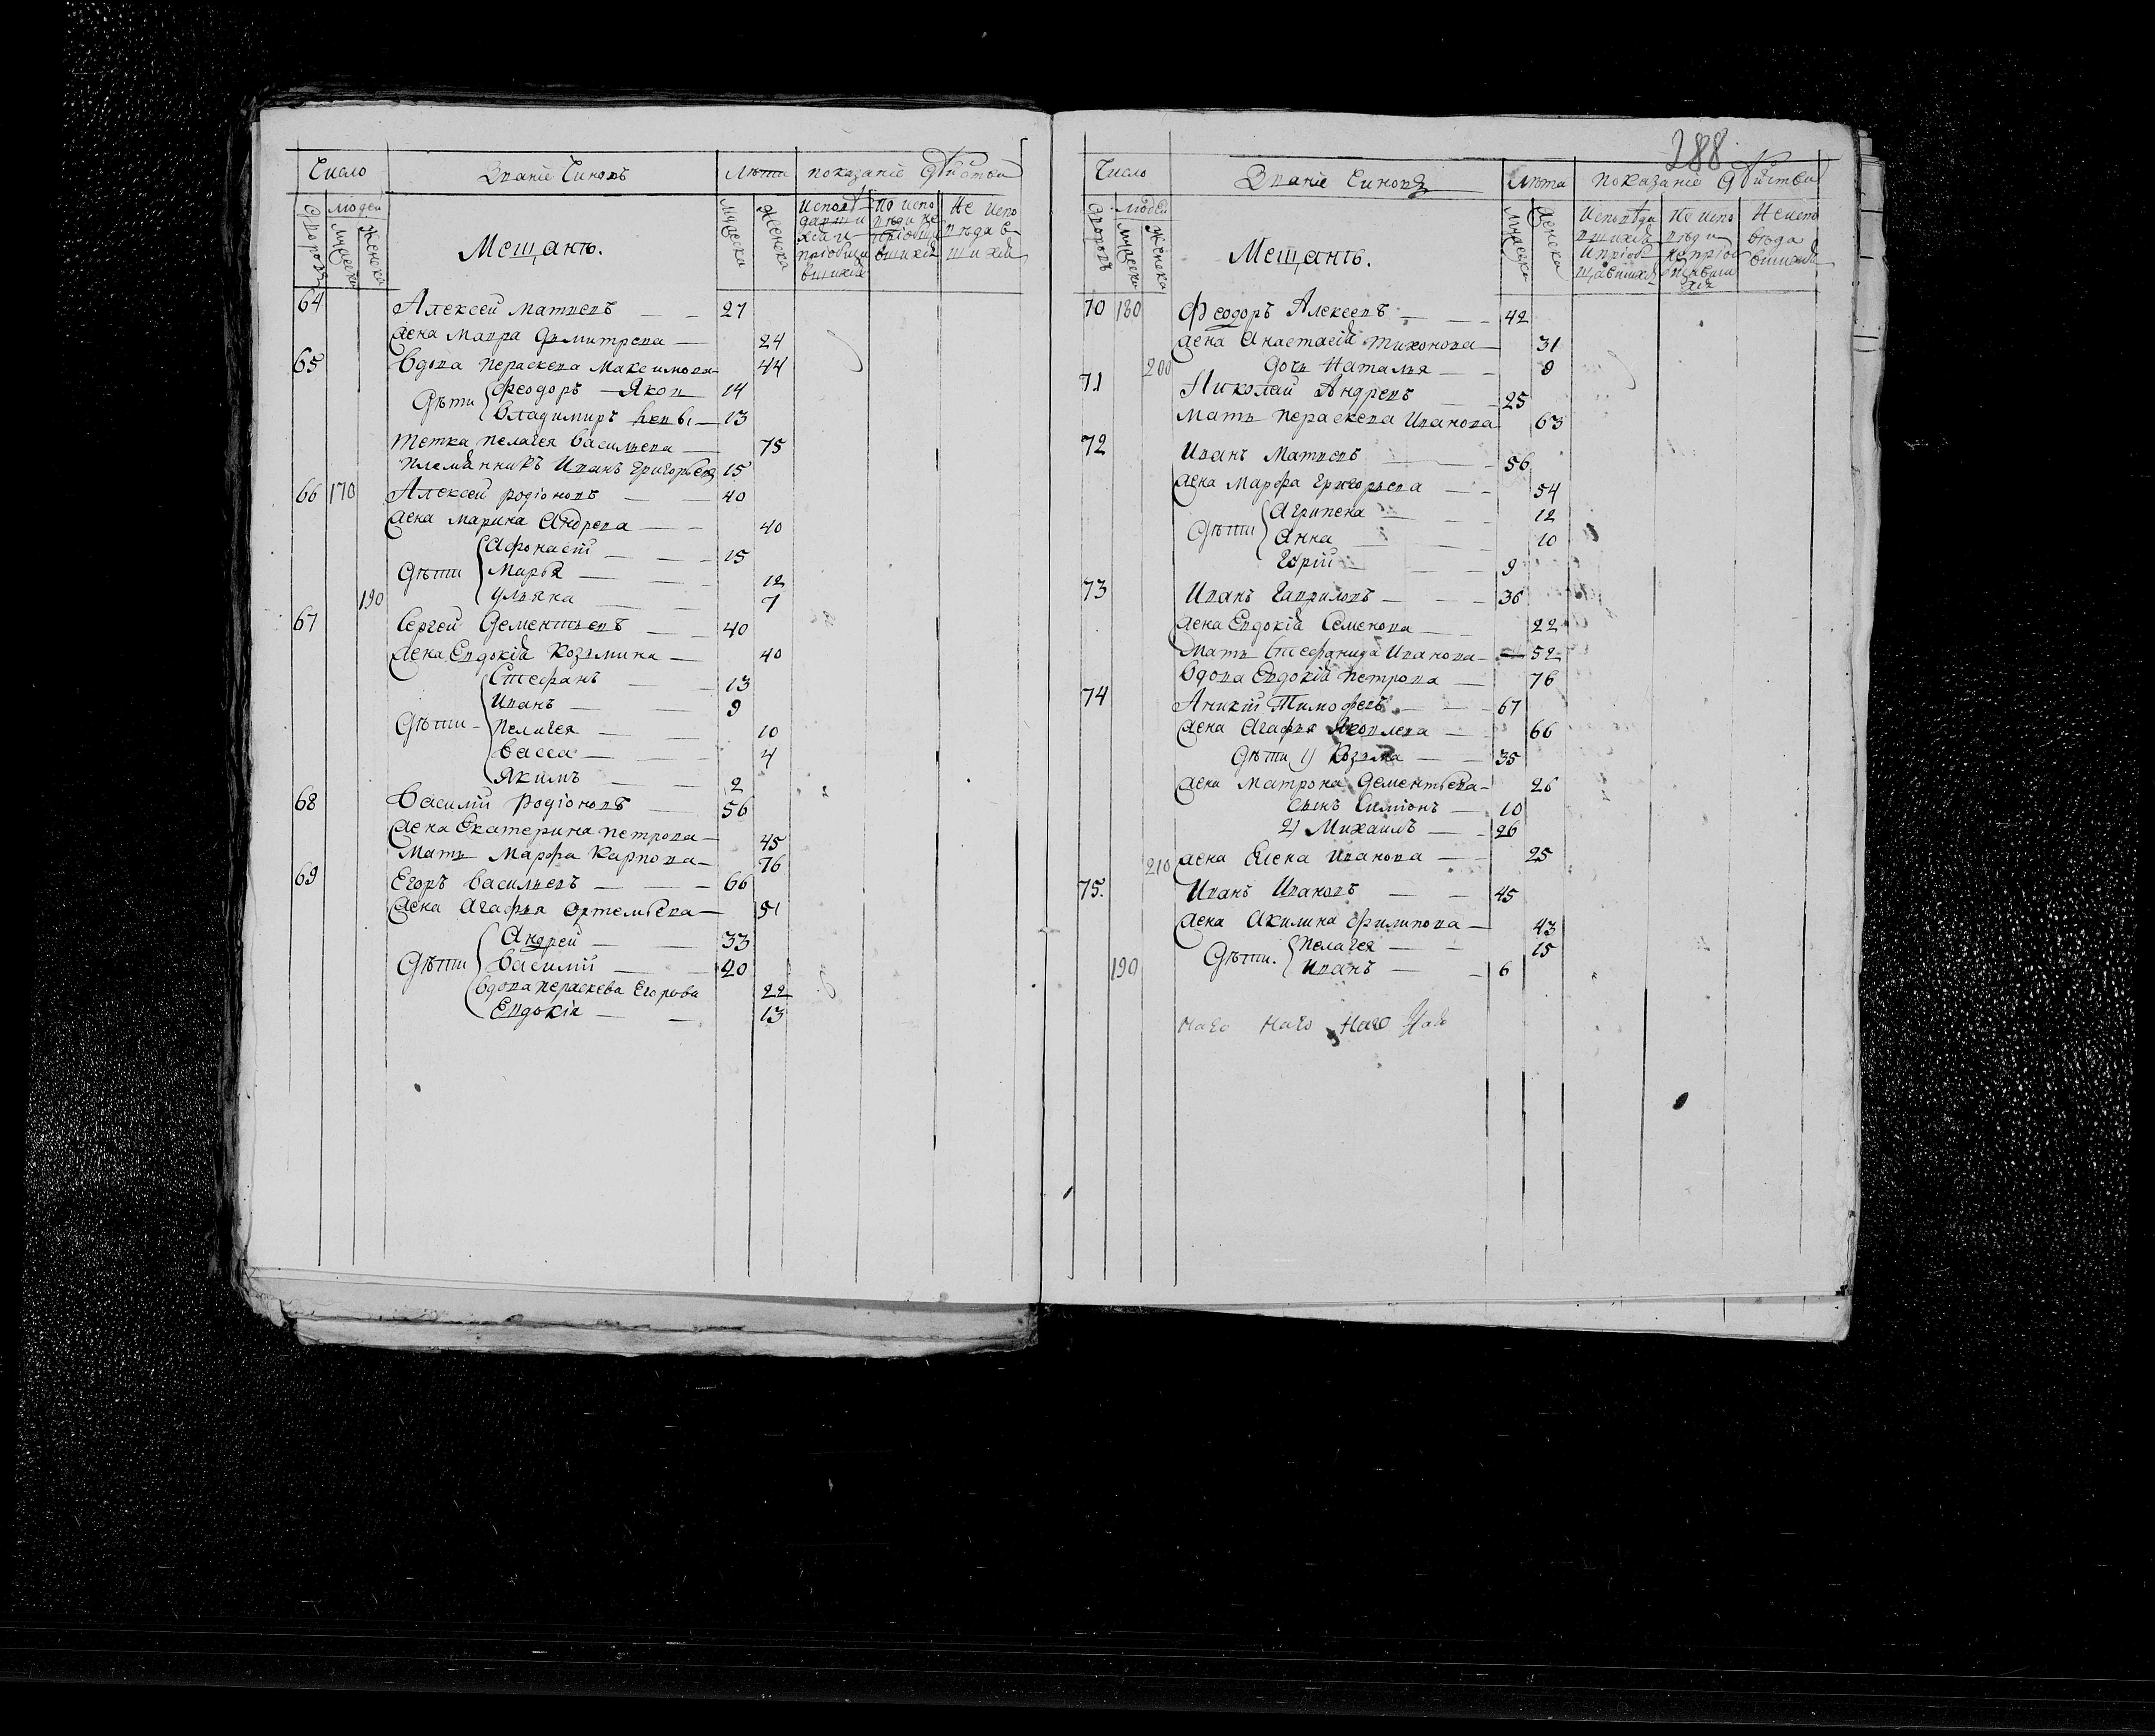 Число Званіе Чиновъ Лѣта показаніе Дѣйства
Дворовъ людей мужеска Женска
Мещанъ.
мужеска Женска
64 Алексей Матвеевъ 27
Жена Мавра Дмитрева 24
65 Вдова Пераскева Максимова 44
Дѣти Феодоръ Яков 14
Владимиръ левы 13
Тетка Пелагея Васильева 75
Племянникъ Иванъ Григорьевъ 15
66 170 Алексей Родіоновъ 40
Жена Марина Андрева 40
Афонасій 15
Дѣти Марья 12
190 Ульяна 7
67 Сергей Дементьевъ 40
Жена Евдокія Козьмина 40
Стефанъ 13
Иванъ 9
Дѣти Пелагея 10
Васса 4
Якимъ 2
68 Василій Родіоновъ 56
Жена Екатерина Петрова 45
Мать Марфа Карпова 76
69 Егоръ Васильевъ 66
Жена Агафья Ортемьева 51
Андрей 33
Дѣти Василій 20
Вдова Пераскева Егорьва 22
Евдокія 13
288
Число Званіе Чиновъ Лѣта показаніе Дѣйства
Дворовъ людей мужеска Женска
Мещанъ.
мужеска Женска
Исповѣдавшихся и пріобщавшихся
Не исповѣдавшихся
70 180 Феодоръ Алексеевъ 42
Жена Анастасія Тихонова 31
200 Дочь Наталья 9
71 Николай Андревъ 25
Мать Пераскева Иванова 63
72 Иванъ Матвеевъ 56
Жена Марфа Григорьева 54
Агрипена 12
Дѣти Анна 10
Юрій 9
73 Иванъ Гавриловъ 36
Жена Евдокія Семенова 22
Мать Стефанида Иванова 52
Вдова Евдокія Петрова 76
74 Аникій Тимофеевъ 67
Жена Агафья Яковлева 66
Дѣти 1) Козьма 35
Жена Матрона Дементьева 26
сынъ Симіонъ 10
2) Михаилъ 26
210 Жена Елена Иванова 25
75. Иванъ Ивановъ 45
Жена Акилина Филипова 43
Дѣти. Пелагея 15
190 Иванъ 6
Наго Наго Наго Наго